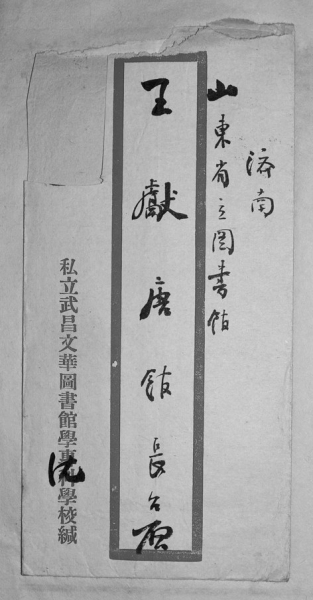 济南
山東省立图書馆
王獻唐馆長台啓
私立武昌文華圖書館學專科學校緘
沈